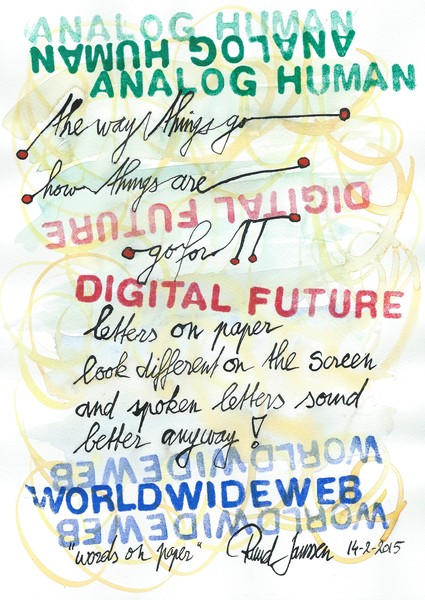 ANALOG HUMAN
ANALOG HUMAN
ANALOG HUMAN
the way things go
how things are
DIGITAL FUTURE
go for it
DIGITAL FUTURE
letters on paper
look different on the screen
and spoken letters sound
better anyway!
WORLDWIDEWEB
WORLDWIDEWEB
WORLDWIDEWEB
"words on paper" Ruud Janssen 14-2-2015